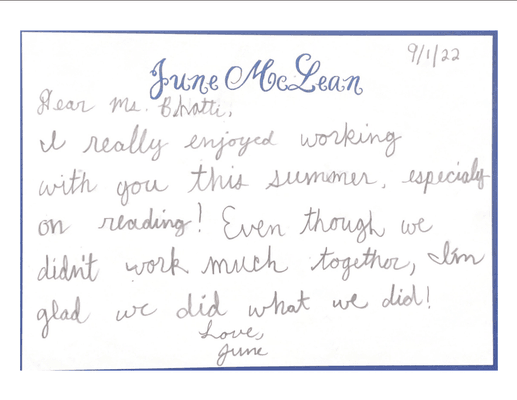 9/1/22
June McLean
Dear Ms. Bhatti,
I really enjoyed working
with you this summer, especialy
on reading! Even though we
didn't work much together, I'm
glad we did what we did!
Love,
June